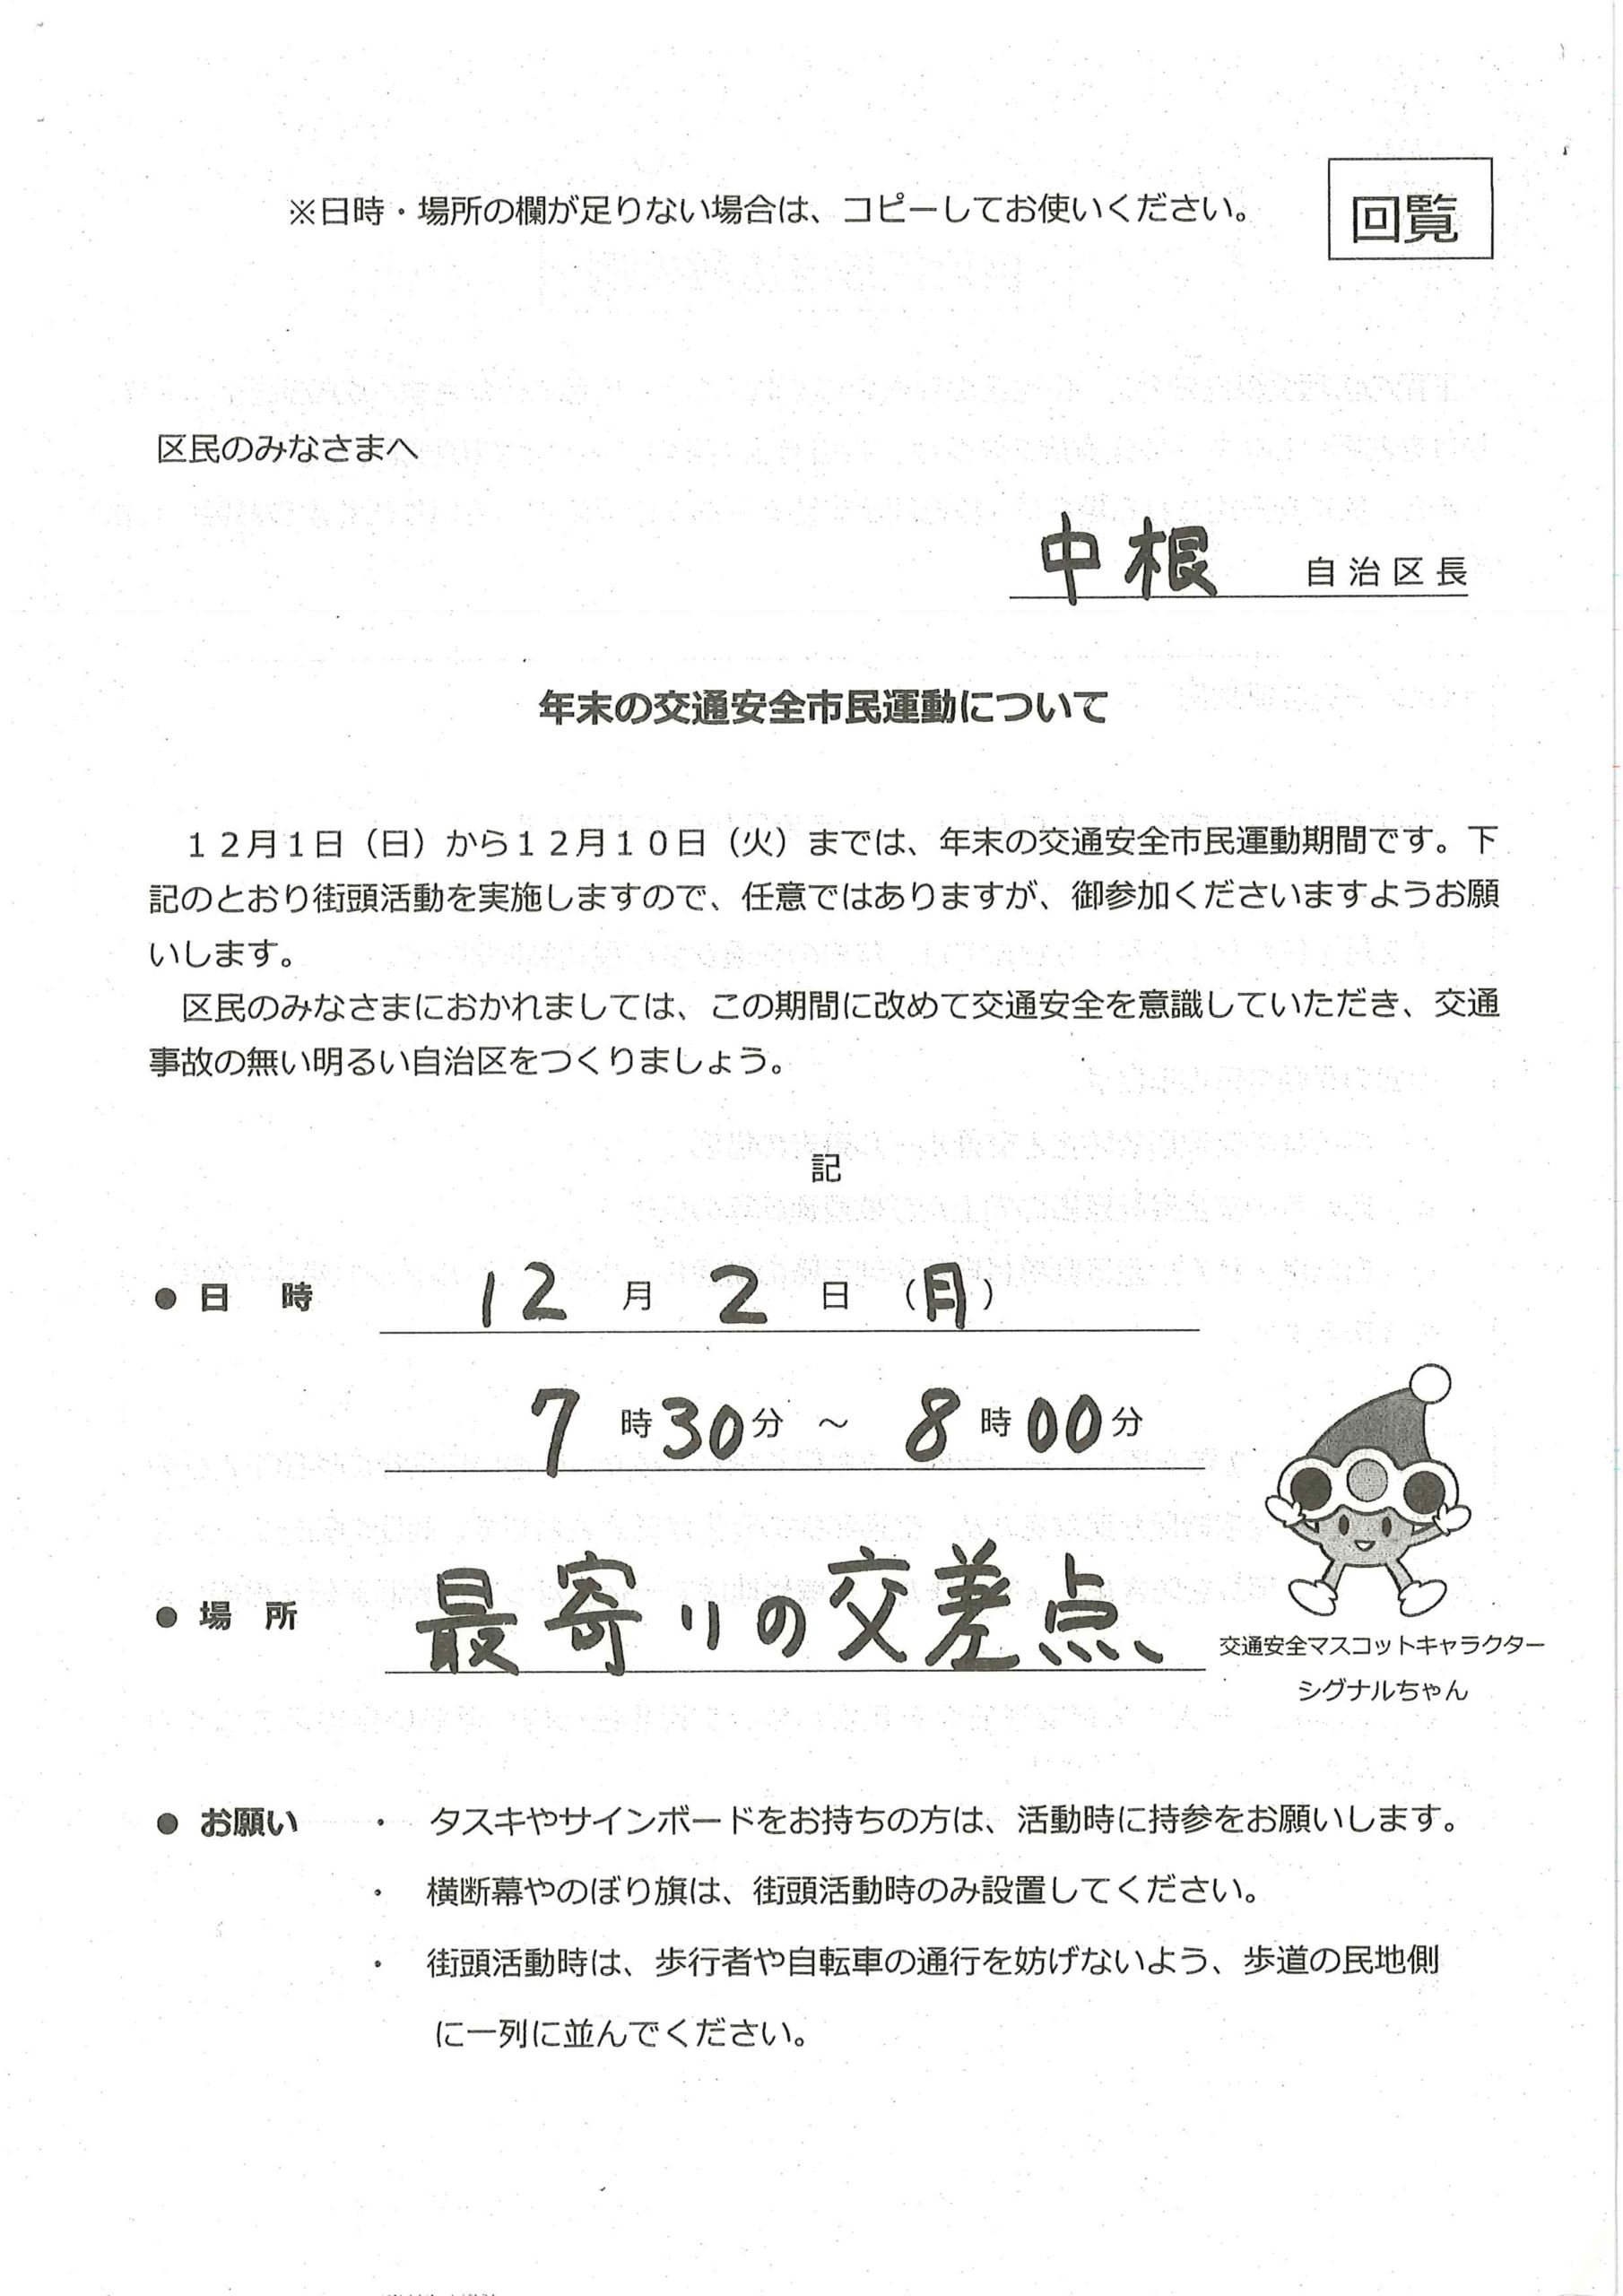 ※日時・場所の欄が足りない場合は、コピーしてお使いください。
回覧
区民のみなさまへ
中根 自治区長
年末の交通安全市民運動について
１２月１日（日）から１２月１０日（火）までは、年末の交通安全市民運動期間です。下
記のとおり街頭活動を実施しますので、任意ではありますが、御参加くださいますようお願
いします。
区民のみなさまにおかれましては、この期間に改めて交通安全を意識していただき、交通
事故の無い明るい自治区をつくりましょう。
記
● 日 時 12 月 2 日（月）
7 時 30 分 ～ 8 時 00 分
● 場 所 最寄りの交差点、
交通安全マスコットキャラクター
シグナルちゃん
● お願い ・ タスキやサインボードをお持ちの方は、活動時に持参をお願いします。
・ 横断幕やのぼり旗は、街頭活動時のみ設置してください。
・ 街頭活動時は、歩行者や自転車の通行を妨げないよう、歩道の民地側
に一列に並んでください。